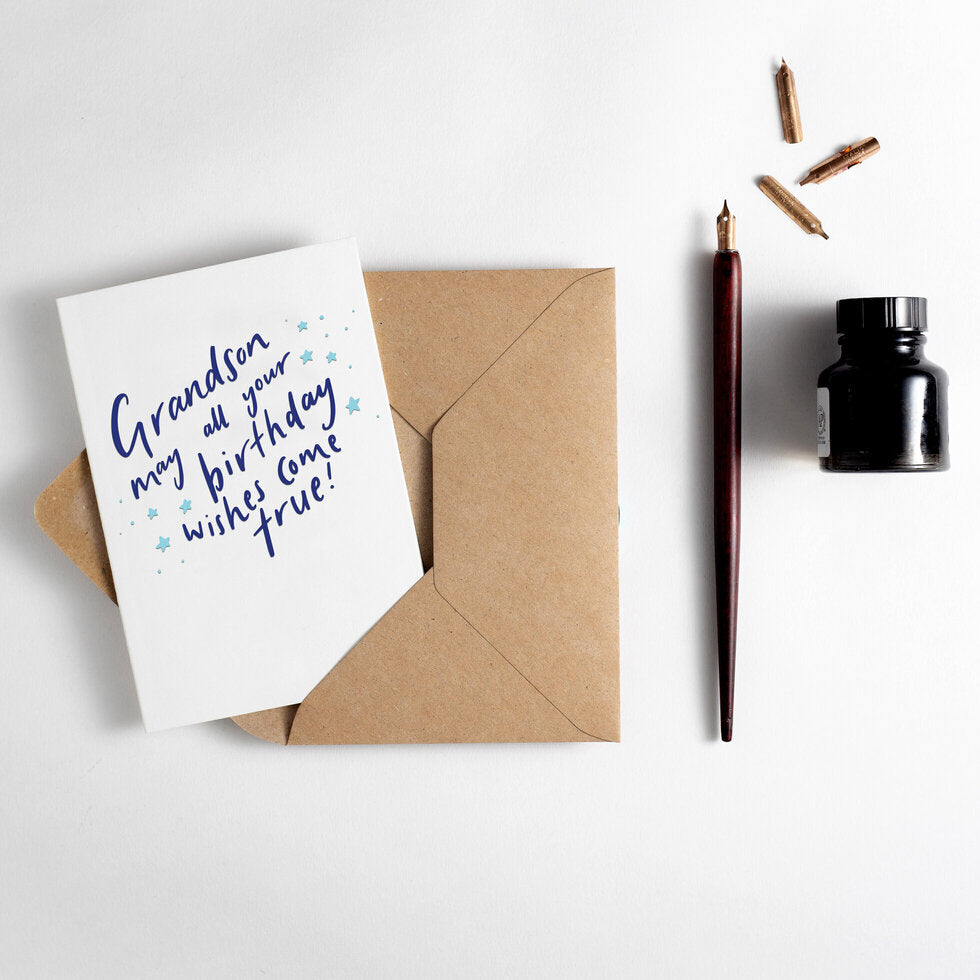 Grandson
may all your
birthday
wishes come
true!